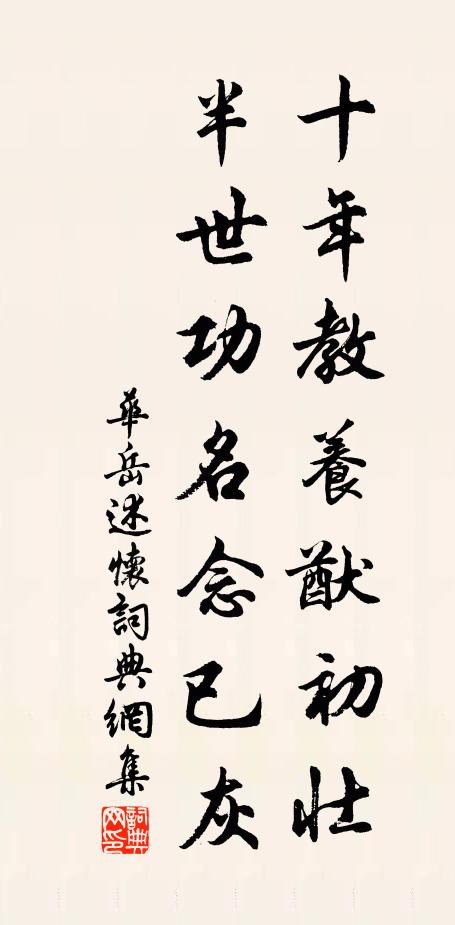 十年教養猷初壮
半世功名念已灰
華岳述懷詞典網集
詞典網印